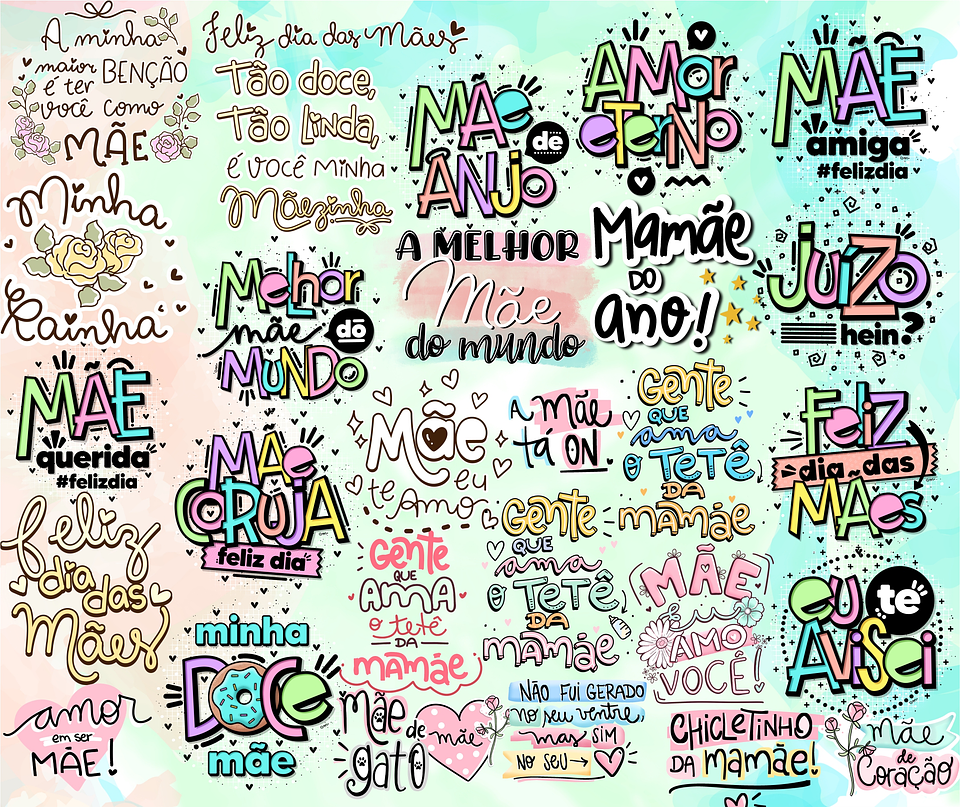 A minha
maior BENÇÃO
é ter
você como
MÃE
Feliz dia das Mães
Tão doce,
Tão LINDA,
é você minha
Mãezinha
MÃe
de
ANJo
AMor
eterNo
MÃE
amiga
#felizdia
Minha
Rainha
Melhor
mãe do
MUNDo
A MELHOR
Mãe
do mundo
Mamãe
DO
ano!
JuíZo,
hein?
MÃE
querida
#felizdia
MÃe
CoRUJA
feliz dia
Mãe
eu
te Amo
A mãe
tá ON
Gente
QUE
ama
o TeTê
DA
mamãe
FeliZ
dia das
MÃes
feliz
dia
das
Mães
Gente
QUE
AMA
o tetê
DA
mamãe
Gente
QUE
ama
o TeTê
DA
mamãe
MÃE
eu
AMO
VOCÊ!
eu te
AviSei
amor
em ser
MÃE!
minha
DoCe
mãe
Mãe
de
gato
mãe
NÃO FUI GERADO
no seu ventre,
mas SIM
NO SEU →
CHICLETINHO
DA mamãe!
mãe
de
Coração